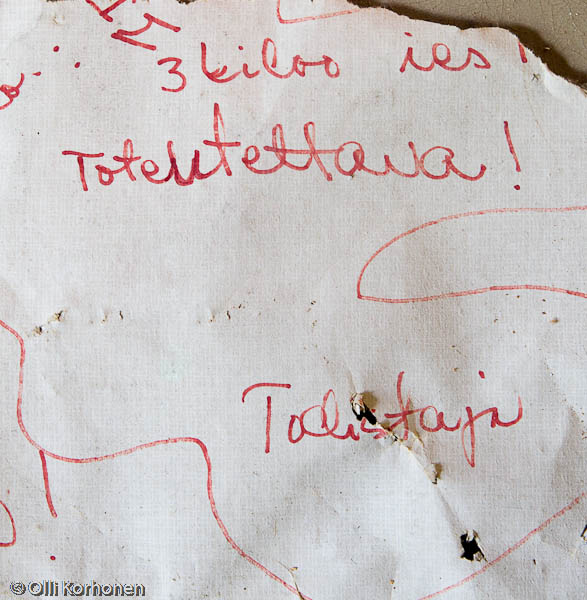 3 kiloo ies
Toteutettava!
Todistaja
© Olli Korhonen